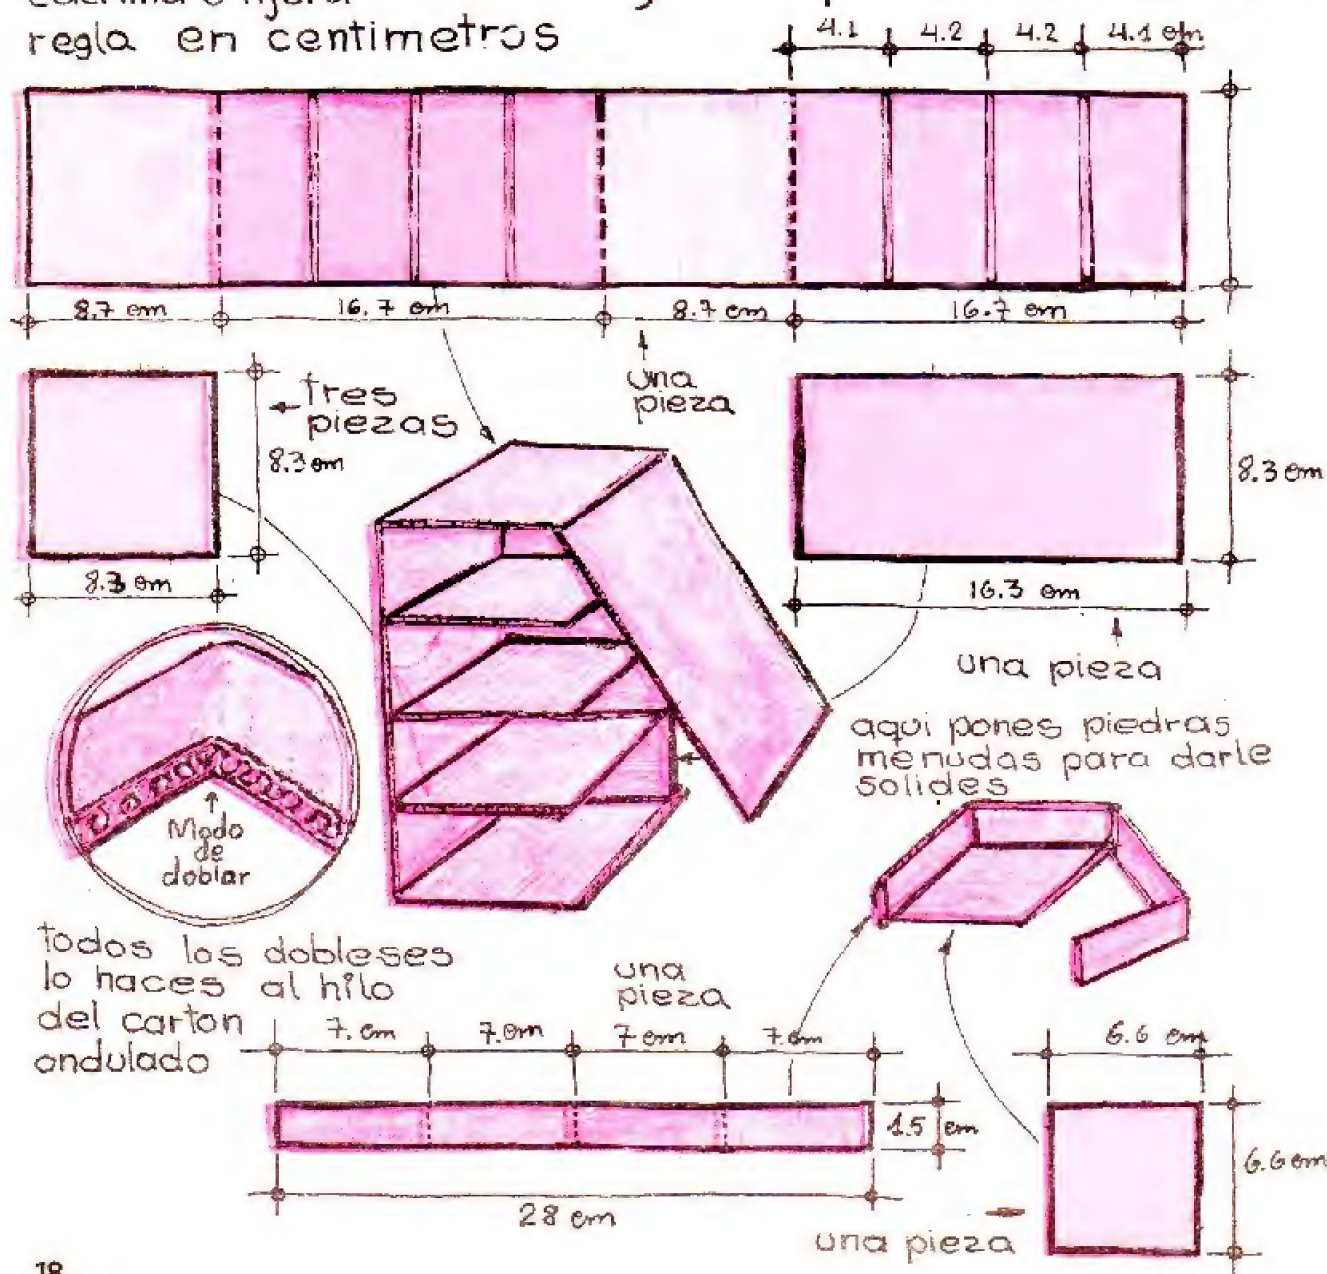 regla en centimetros
4.1 4.2 4.2 4.1 cm
8.7 cm 16.7 cm 8.7 cm 16.7 cm
una
pieza
tres
piezas
8.3 cm
8.3 cm
8.3 cm
16.3 cm
una pieza
Modo
de
doblar
aqui pones piedras
menudas para darle
solides
todos los dobleses
lo haces al hilo
del carton
ondulado
una
pieza
7. cm 7. cm 7 cm 7. cm
1.5 cm
28 cm
6.6 cm
6.6 cm
una pieza
18